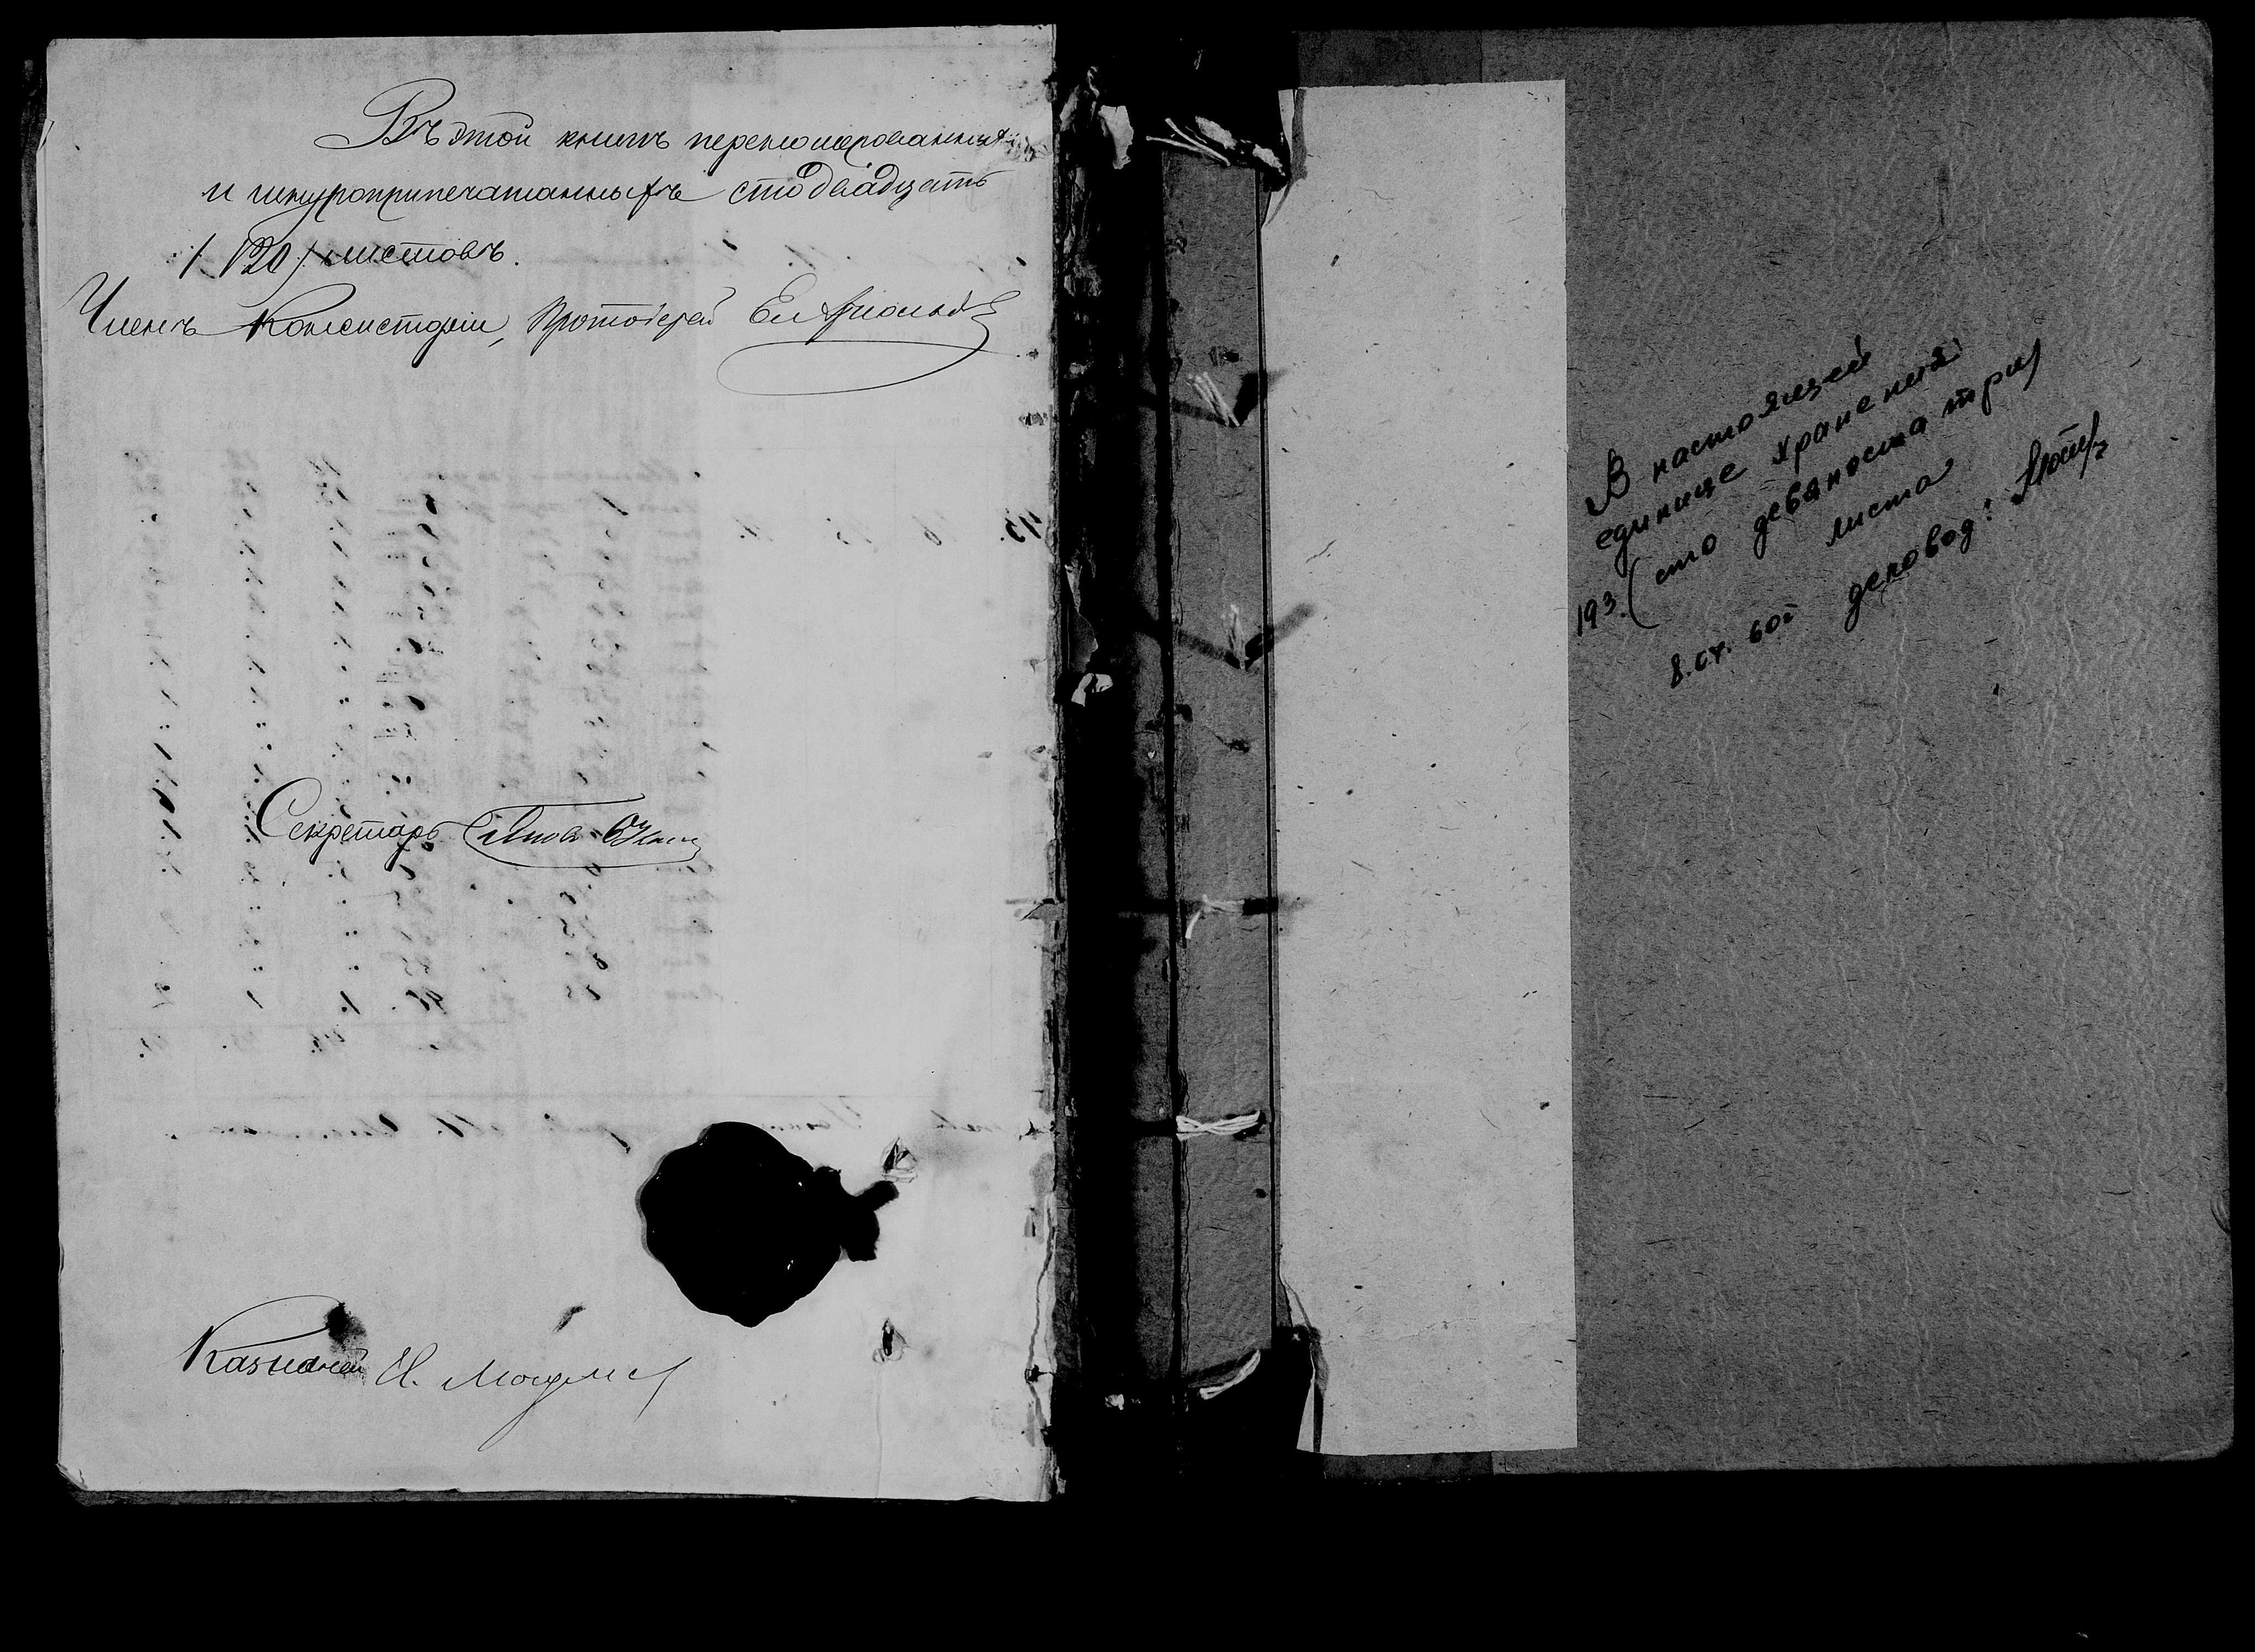 Въ этой книгѣ перенумерованныхъ
и шнуроприпечатанныхъ сто двадцать
/. 120 ./ листовъ.
Членъ Консисторіи, Протоіерей
Секретарь
Казначей Н.
В настоящей
единице хранения
193 (сто девяноста три)
листа
8.04. 60г деловод: